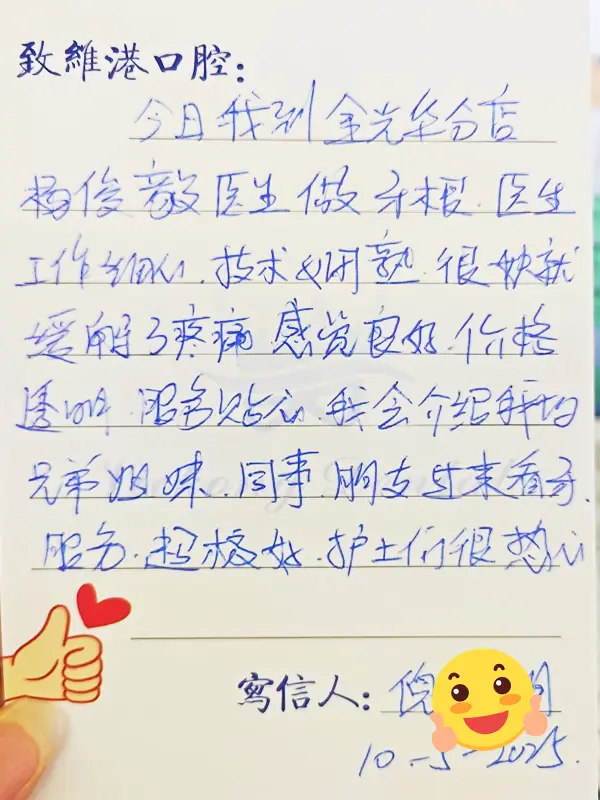 致維港口腔：
今日我到金光华分店
杨俊毅医生做牙根.医生
工作细心.技术娴熟.很快就
缓解了疼痛 感觉良好.价格
透明.服务贴心.我会介绍我的
兄弟姐妹.同事 朋友过来看牙.
服务.超棒好.护士们很热心
寫信人：倪
10-5-2025.